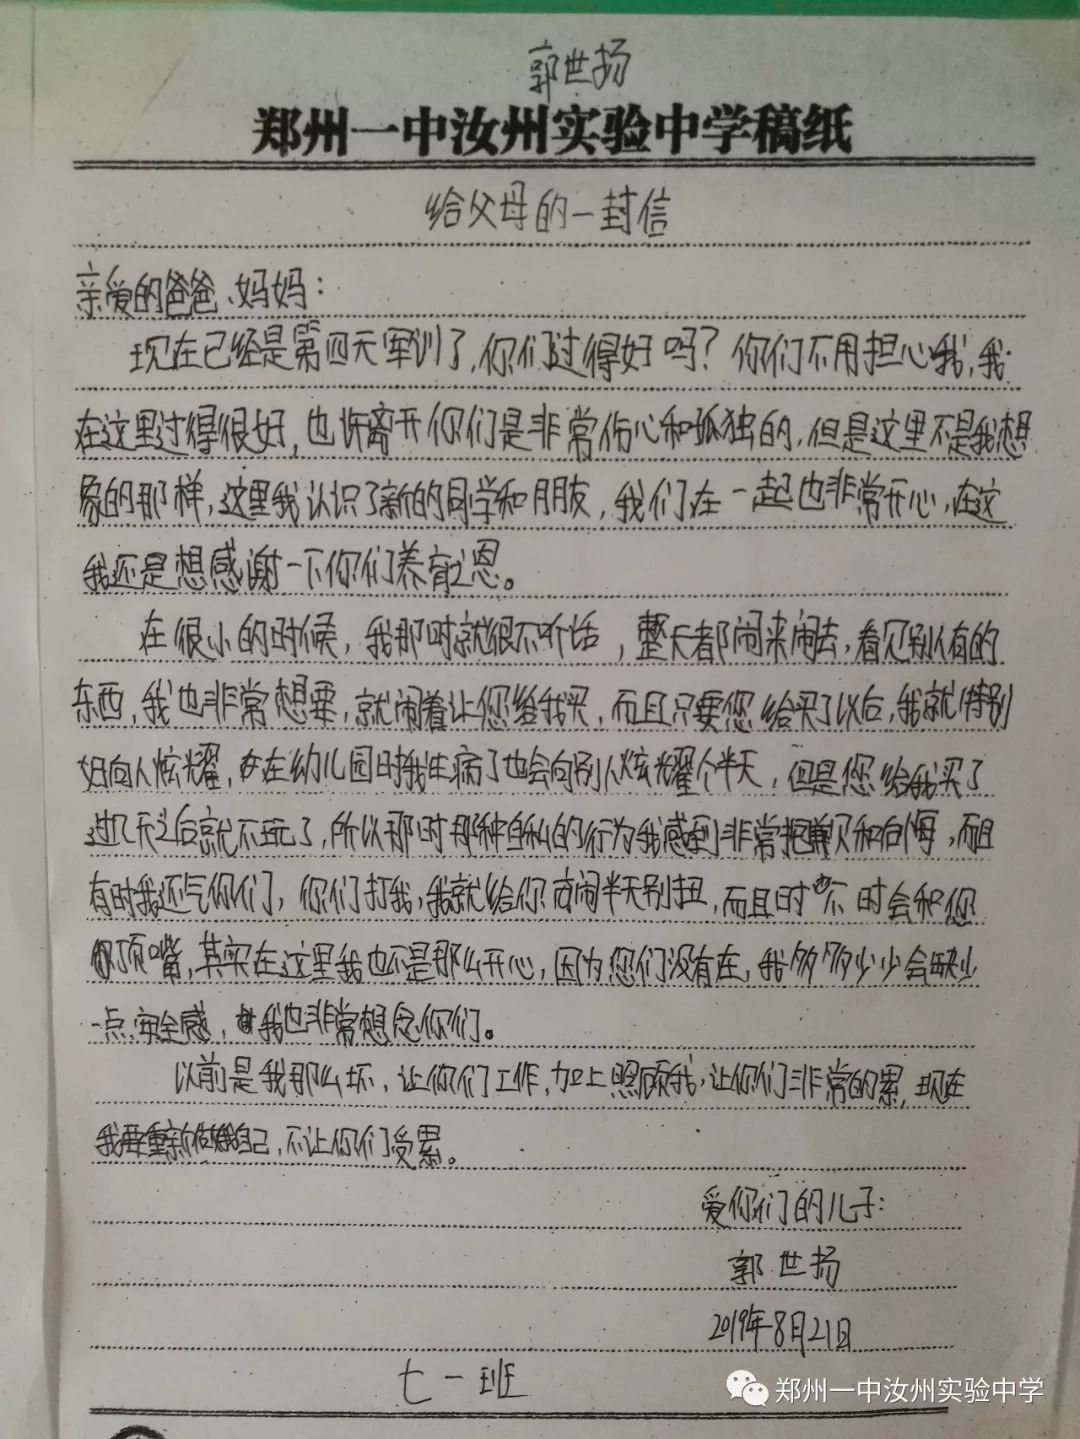 郭世扬
郑州一中汝州实验中学稿纸
给父母的一封信
亲爱的爸爸、妈妈：
现在已经是第四天军训了，你们过得好吗？你们不用担心我，我
在这里过得很好，也许离开你们是非常伤心和孤独的，但是这里不是我想
象的那样，这里我认识了新的同学和朋友，我们在一起也非常开心，在这
我还是想感谢一下你们养育之恩。
在很小的时候，我那时就很不听话，整天都闹来闹去，看见别人有的
东西，我也非常想要，就闹着让您给我买，而且只要您给买了以后，我就特别
好向人炫耀，在幼儿园时我生病了也会向别人炫耀个半天，但是您给我买了
过几天之后就不玩了，所以那时那种自私的行为我感到非常抱歉和后悔，而且
有时我还气你们，你们打我，我就给你闹半天别扭，而且时不时会和您
顶嘴，其实在这里我也不是那么开心，因为您们没有在，我多多少少会缺少
一点安全感，我也非常想念你们。
以前是我那么坏，让你们工作，加上照顾我，让你们非常的累，现在
我要重新做我自己，不让你们受累。
爱你们的儿子：
郭世扬
2019年8月21日
七一班
郑州一中汝州实验中学